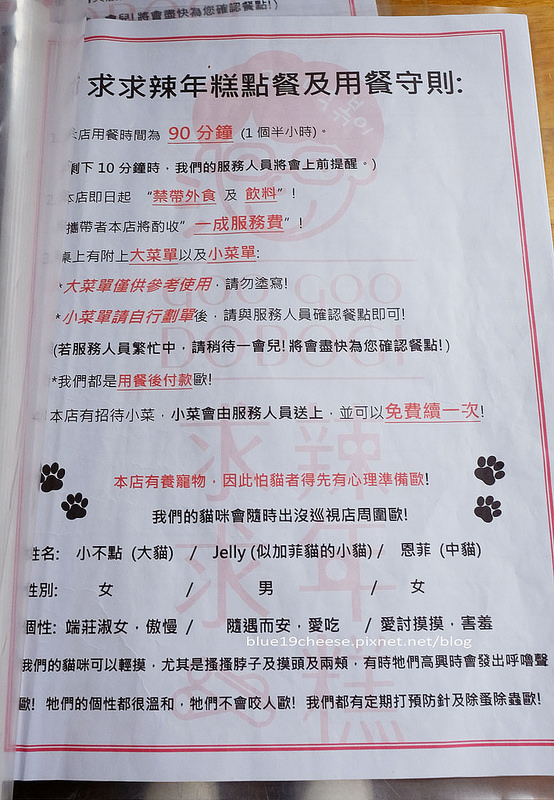 會兒! 將會盡快為您確認餐點! )
求求辣年糕點餐及用餐守則:
本店用餐時間為 90 分鐘 (1 個半小時)。
剩下 10 分鐘時，我們的服務人員將會上前提醒。)
本店即日起 “禁帶外食 及 飲料” !
攜帶者本店將酌收” 一成服務費” !
桌上有附上大菜單以及小菜單:
*大菜單僅供參考使用，請勿塗寫!
*小菜單請自行劃單後，請與服務人員確認餐點即可!
(若服務人員繁忙中，請稍待一會兒! 將會盡快為您確認餐點! )
*我們都是用餐後付款歐!
本店有招待小菜，小菜會由服務人員送上，並可以免費續一次!
本店有養寵物，因此怕貓者得先有心理準備歐!
我們的貓咪會隨時出沒巡視店周圍歐!
姓名: 小不點 (大貓) / Jelly (似加菲貓的小貓) / 恩菲 (中貓)
性別: 女 / 男 / 女
個性: 端莊淑女，傲慢 / 隨遇而安，愛吃 / 愛討摸摸，害羞
blue19cheese.pixnet.net/blog
我們的貓咪可以輕摸，尤其是搔搔脖子及摸頭及兩頰，有時牠們高興時會發出呼嚕聲
歐! 牠們的個性都很溫和，牠們不會咬人歐! 我們都有定期打預防針及除蚤除蟲歐!
GOO GOO
DOBOGI
求 辣
求 年
糕